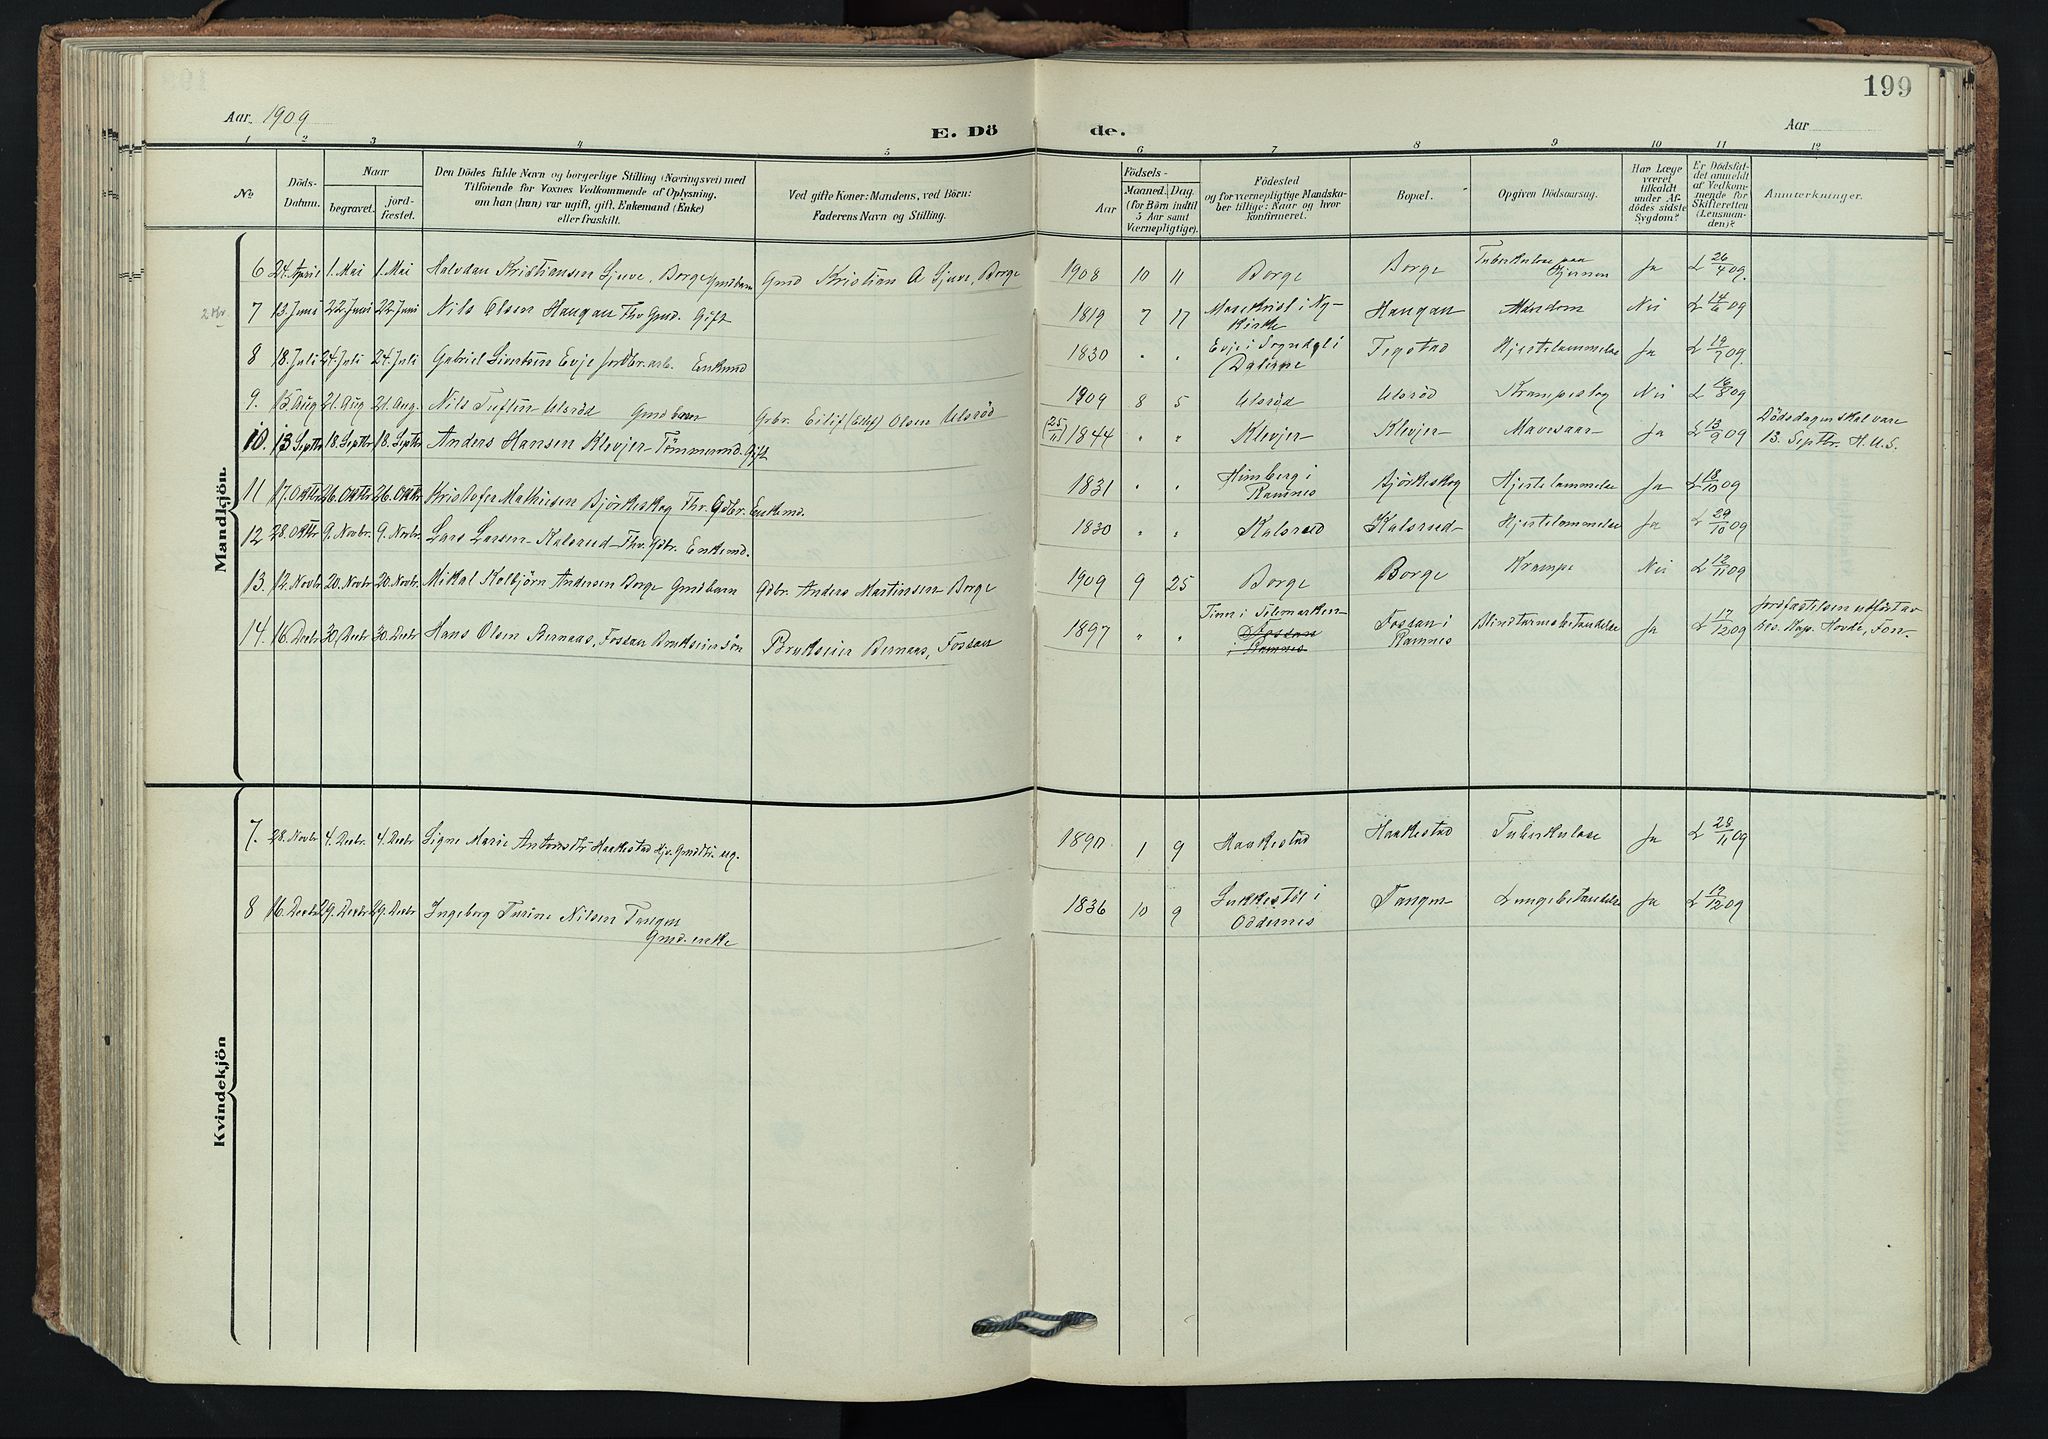 199
Aar. 1909
E. Dö
de.
Aar
1 2 3 4 5 6 7 8 9 10 11 12
No
Döds-
Datum.
Naar
begravet.
jord-
fæstet.
Den Dödes fulde Navn og borgerlige Stilling (Næringsvei) med
Tilföiende for Voxnes Vedkommende af Oplysning,
om han (hun) var ugift, gift, Enkemand (Enke)
eller fraskilt.
Ved gifte Koner: Mandens, ved Börn:
Faderens Navn og Stilling.
Födsels-
Aar
Maaned. Dag.
(for Börn indtil
5 Aar samt
Værnepligtige).
Födested
og for værnepligtige Mandska-
ber tillige: Naar og hvor
konfirmeret.
Bopæl.
Opgiven Dödsaarsag.
Har Læge
været
tilkaldt
under Af-
dödes sidste
Sygdom?
Er Dödsfal-
det anmeldt
af Vedkom-
mende for
Skifteretten
(Lensman-
den)?
Anmærkninger.
Mandkjön.
6 24. April 1. Mai 1. Mai Halvdan Kristiansen Sjuve, Borge Gmdbarn Gmd Kristian A Sjuve, Borge 1908 10 11 Borge Borge Tuberkulose paa Hjernen Ja L 26/4 09.
2 Kr.
7 13. Juni 22. Juni 22. Juni Nils Olsen Haugan Fhv Gmd. Gift 1819 7 17 i Ny-
kirke Haugan Nei L 14/6 09
8 18. Juli 24. Juli 24. Juli Gabriel Sivertsen Evje Jordbr. arb. Enkemd 1830 " " Evje i Sogndal i
Dalerne Tegstad Hjertelammelse Ja L 19/7 09.
9. 15 Aug 21. Aug 21. Aug. Nils Tufton Ulsröd Gmdbarn Gbr. Eilif (Ellef) Olsen Ulsröd 1909 8 5 Ulsröd Ulsröd Nei L 16/8 09
10. 13 Septbr 18. Septbr 18. Septbr Anders Hansen Klevjer Tömmermd. Gift (25/11) 1844 " " Klevjer Klevjer Mavesaar Ja L 13/9 09 Dödsdagen skal være
13. Septbr. H.U.S.
11 17. Oktbr 26. Oktbr 26. Oktbr Kristofer Mathisen Björkeskog Fhv. Gdbr. Enkemd. 1831 " " Himberg i
Ramnes Björkeskog Hjertelammelse Ja L 18/10 09
12 28. Oktbr 9. Novbr. 9. Novbr. Lars Larsen Kalsrud Fhv. Gdbr. Enkemd. 1830 " " Kalsrud Kalsrud Hjertelammelse Ja L 29/10 09
13. 12. Novbr 20. Novbr 20. Novbr. Mikal Kolbjörn Andersen Borge Gmdbarn Gdbr. Anders Martinsen Borge 1909 9 25 Borge Borge Krampe Nei L 12/11 09
14. 16. Decbr 30. Decbr 30. Decbr Hans Olsen Bernaas, Fossan Brukseiersön Brukseier Bernaas, Fossan 1897 " " Tinn i Telemarken
Fossan
i Ramnes Fossan i
Ramnes Blindtarmsbetændelse Ja L 17/12 09 Jordfæstelsen udfört av
Kap. Hovde, Fon.
Kvindekjön
7. 28. Novbr 4. Decbr. 4. Decbr Signe Marie Antonsdtr Haakestad Hjv. Gmddtr. ug. 1890. 1 9 Haakestad Haakestad Tuberkulose Ja L 28/11 09
8 16. Decbr 29. Decbr 29. Decbr Ingeborg Tusine Nilsen Tangen
Gmd. enke 1836 10 9 i
Oddernes Tangen Lungebetændelse Ja L 19/12 09